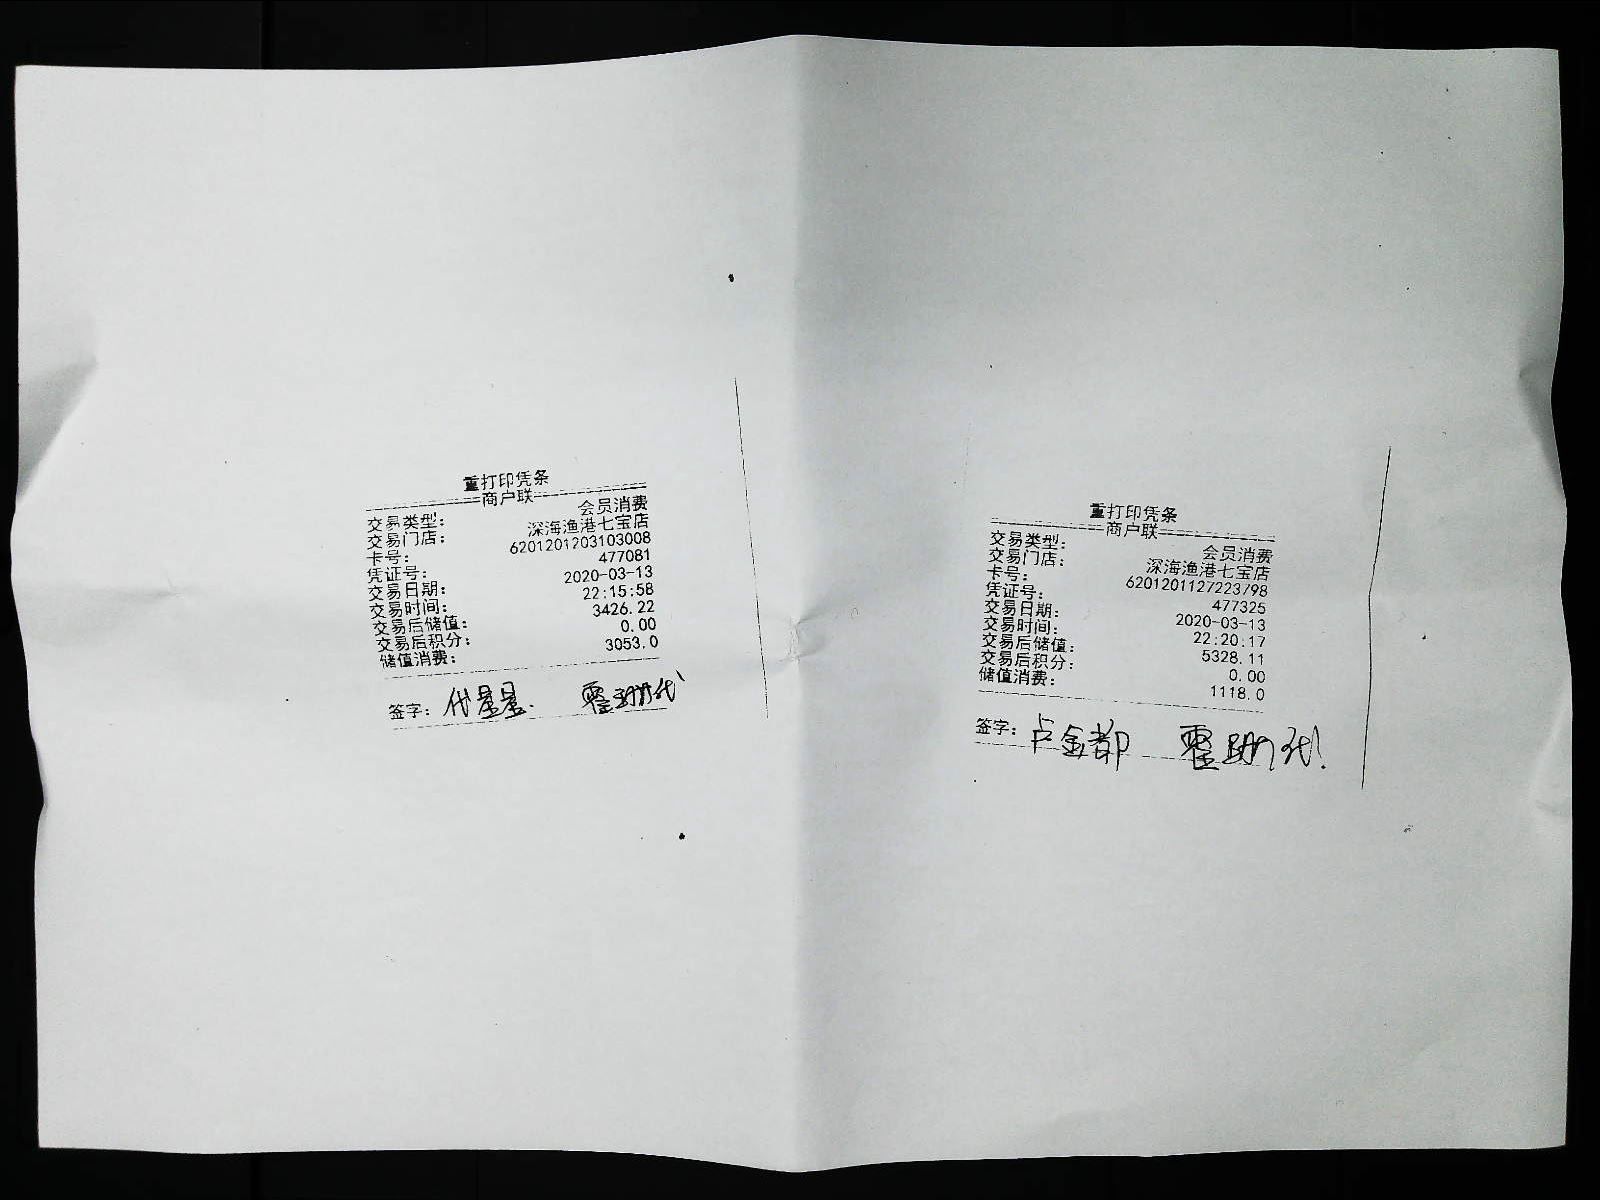 重打印凭条
商户联
交易类型： 会员消费
交易门店： 深海渔港七宝店
卡号： 6201201203103008
凭证号： 477081
交易日期： 2020-03-13
交易时间： 22:15:58
交易后储值： 3426.22
交易后积分： 0.00
储值消费： 3053.0
签字：代星星. 霍代
重打印凭条
商户联
交易类型： 会员消费
交易门店： 深海渔港七宝店
卡号： 6201201127223798
凭证号： 477325
交易日期： 2020-03-13
交易时间： 22:20:17
交易后储值： 5328.11
交易后积分： 0.00
储值消费： 1118.0
签字：占金都 霍代